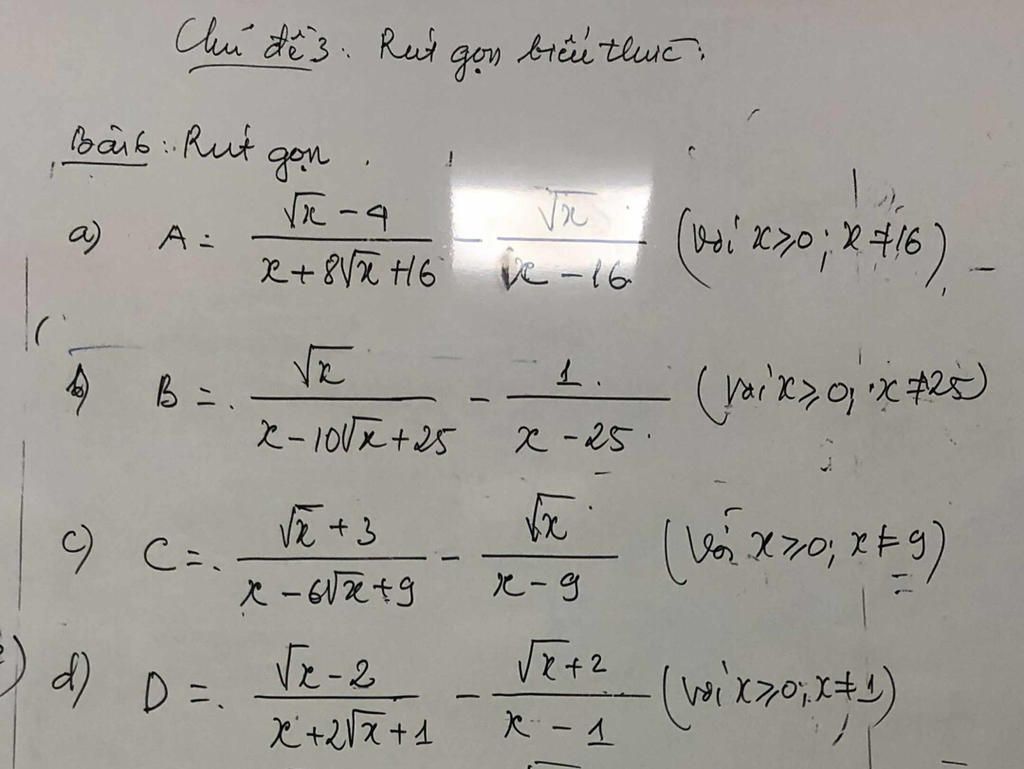 Chủ đề 3: Rút gọn biểu thức:
Bài 6: Rút gọn
a) A = (√x - 4)/(x + 8√x + 16) - √x/(x - 16) (với x ≥ 0; x ≠ 16)
b) B = √x/(x - 10√x + 25) - 1/(x - 25) (với x ≥ 0; x ≠ 25)
c) C = (√x + 3)/(x - 6√x + 9) - √x/(x - 9) (với x ≥ 0; x ≠ 9)
d) D = (√x - 2)/(x + 2√x + 1) - (√x + 2)/(x - 1) (với x ≥ 0; x ≠ 1)